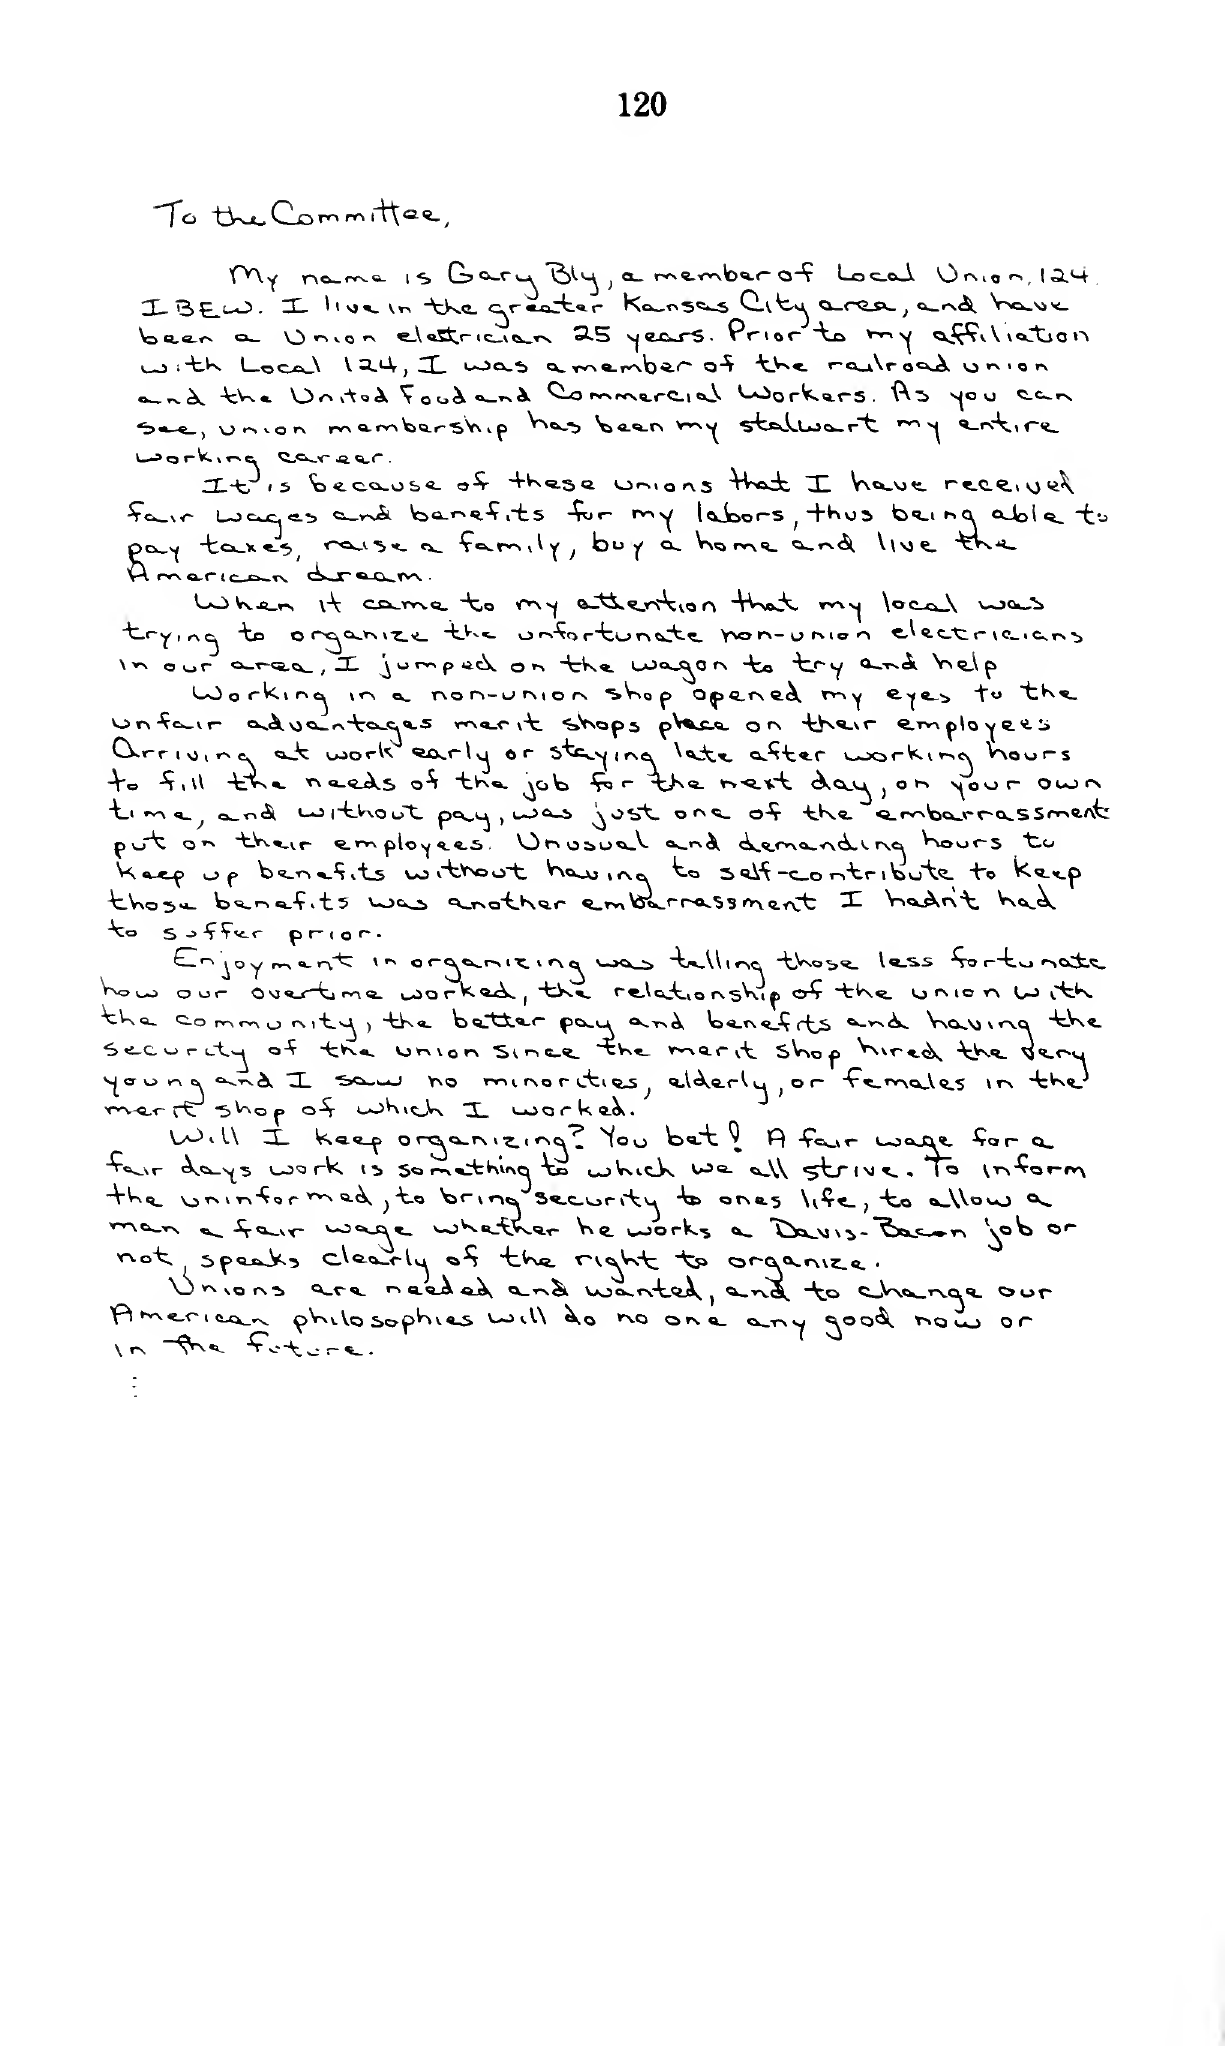 120
To the Committee,
My name is Gary Bly, a member of Local Union, 124
IBEW. I live in the greater Kansas City area, and have
been a Union electrician 25 years. Prior to my affiliation
with Local 124, I was a member of the railroad union
and the United Food and Commercial Workers. As you can
see, union membership has been my stalwart my entire
working career.
It is because of these unions that I have received
fair wages and benefits for my labors, thus being able to
pay taxes, raise a family, buy a home and live the
American dream.
When it came to my attention that my local was
trying to organize the unfortunate non-union electricians
in our area, I jumped on the wagon to try and help
Working in a non-union shop opened my eyes to the
unfair advantages merit shops place on their employees
Arriving at work early or staying late after working hours
to fill the needs of the job for the next day, on your own
time, and without pay, was just one of the embarrassment
put on their employees. Unusual and demanding hours to
keep up benefits without having to self-contribute to keep
those benefits was another embarrassment I hadn't had
to suffer prior.
Enjoyment in organizing was telling those less fortunate
how our overtime worked, the relationship of the union with
the community, the better pay and benefits and having the
security of the union since the merit shop hired the very
young and I saw no minorities, elderly, or females in the
merit shop of which I worked.
Will I keep organizing? You bet! A fair wage for a
fair days work is something to which we all strive. To inform
the uninformed, to bring security to ones life, to allow a
man a fair wage whether he works a Davis-Bacon job or
not, speaks clearly of the right to organize.
Unions are needed and wanted, and to change our
American philosophies will do no one any good now or
in the future.